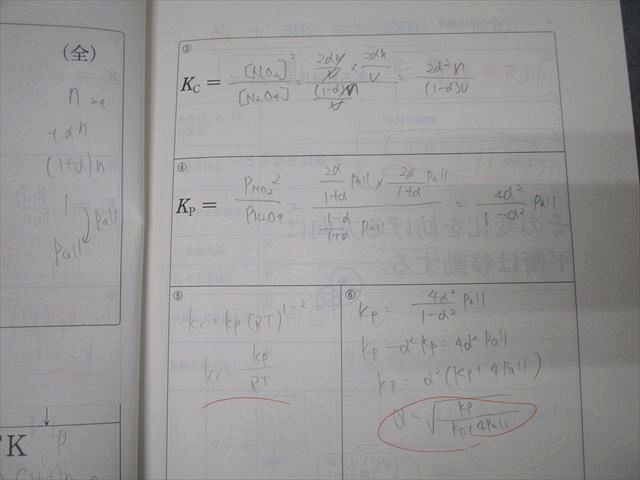 (全)
n
+αn
(1+α)n
1
Pall
Pall
③
K_C = [NO₂]² / [N₂O₄] = (2αn/V × 2αn/V) / ((1-α)n/V) = 2α²n / (1-α)V
④
K_P = P_NO₂² / P_N₂O₄ = (2α/1+α Pall × 2α/1+α Pall) / (1-α/1+α Pall) = 4α² / 1-α² Pall
⑤
Kc = Kp (RT)^1-2
Kc = Kp / RT
⑥
Kp = 4α² / 1-α² Pall
Kp - α² Kp = 4α² Pall
Kp = α² (Kp + 4Pall)
α = √(Kp / Kp+4Pall)
K
P